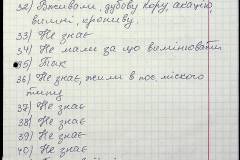 32) Вживали, дубову кору, акацію,
вишні, кропиву.
33) Не знає
34) Не мали за що вимінювати
35) Так
36) Не знає, жили в пос. міського
типу
37) Не знає
38) Не знає
39) Не знає
40) Не знає